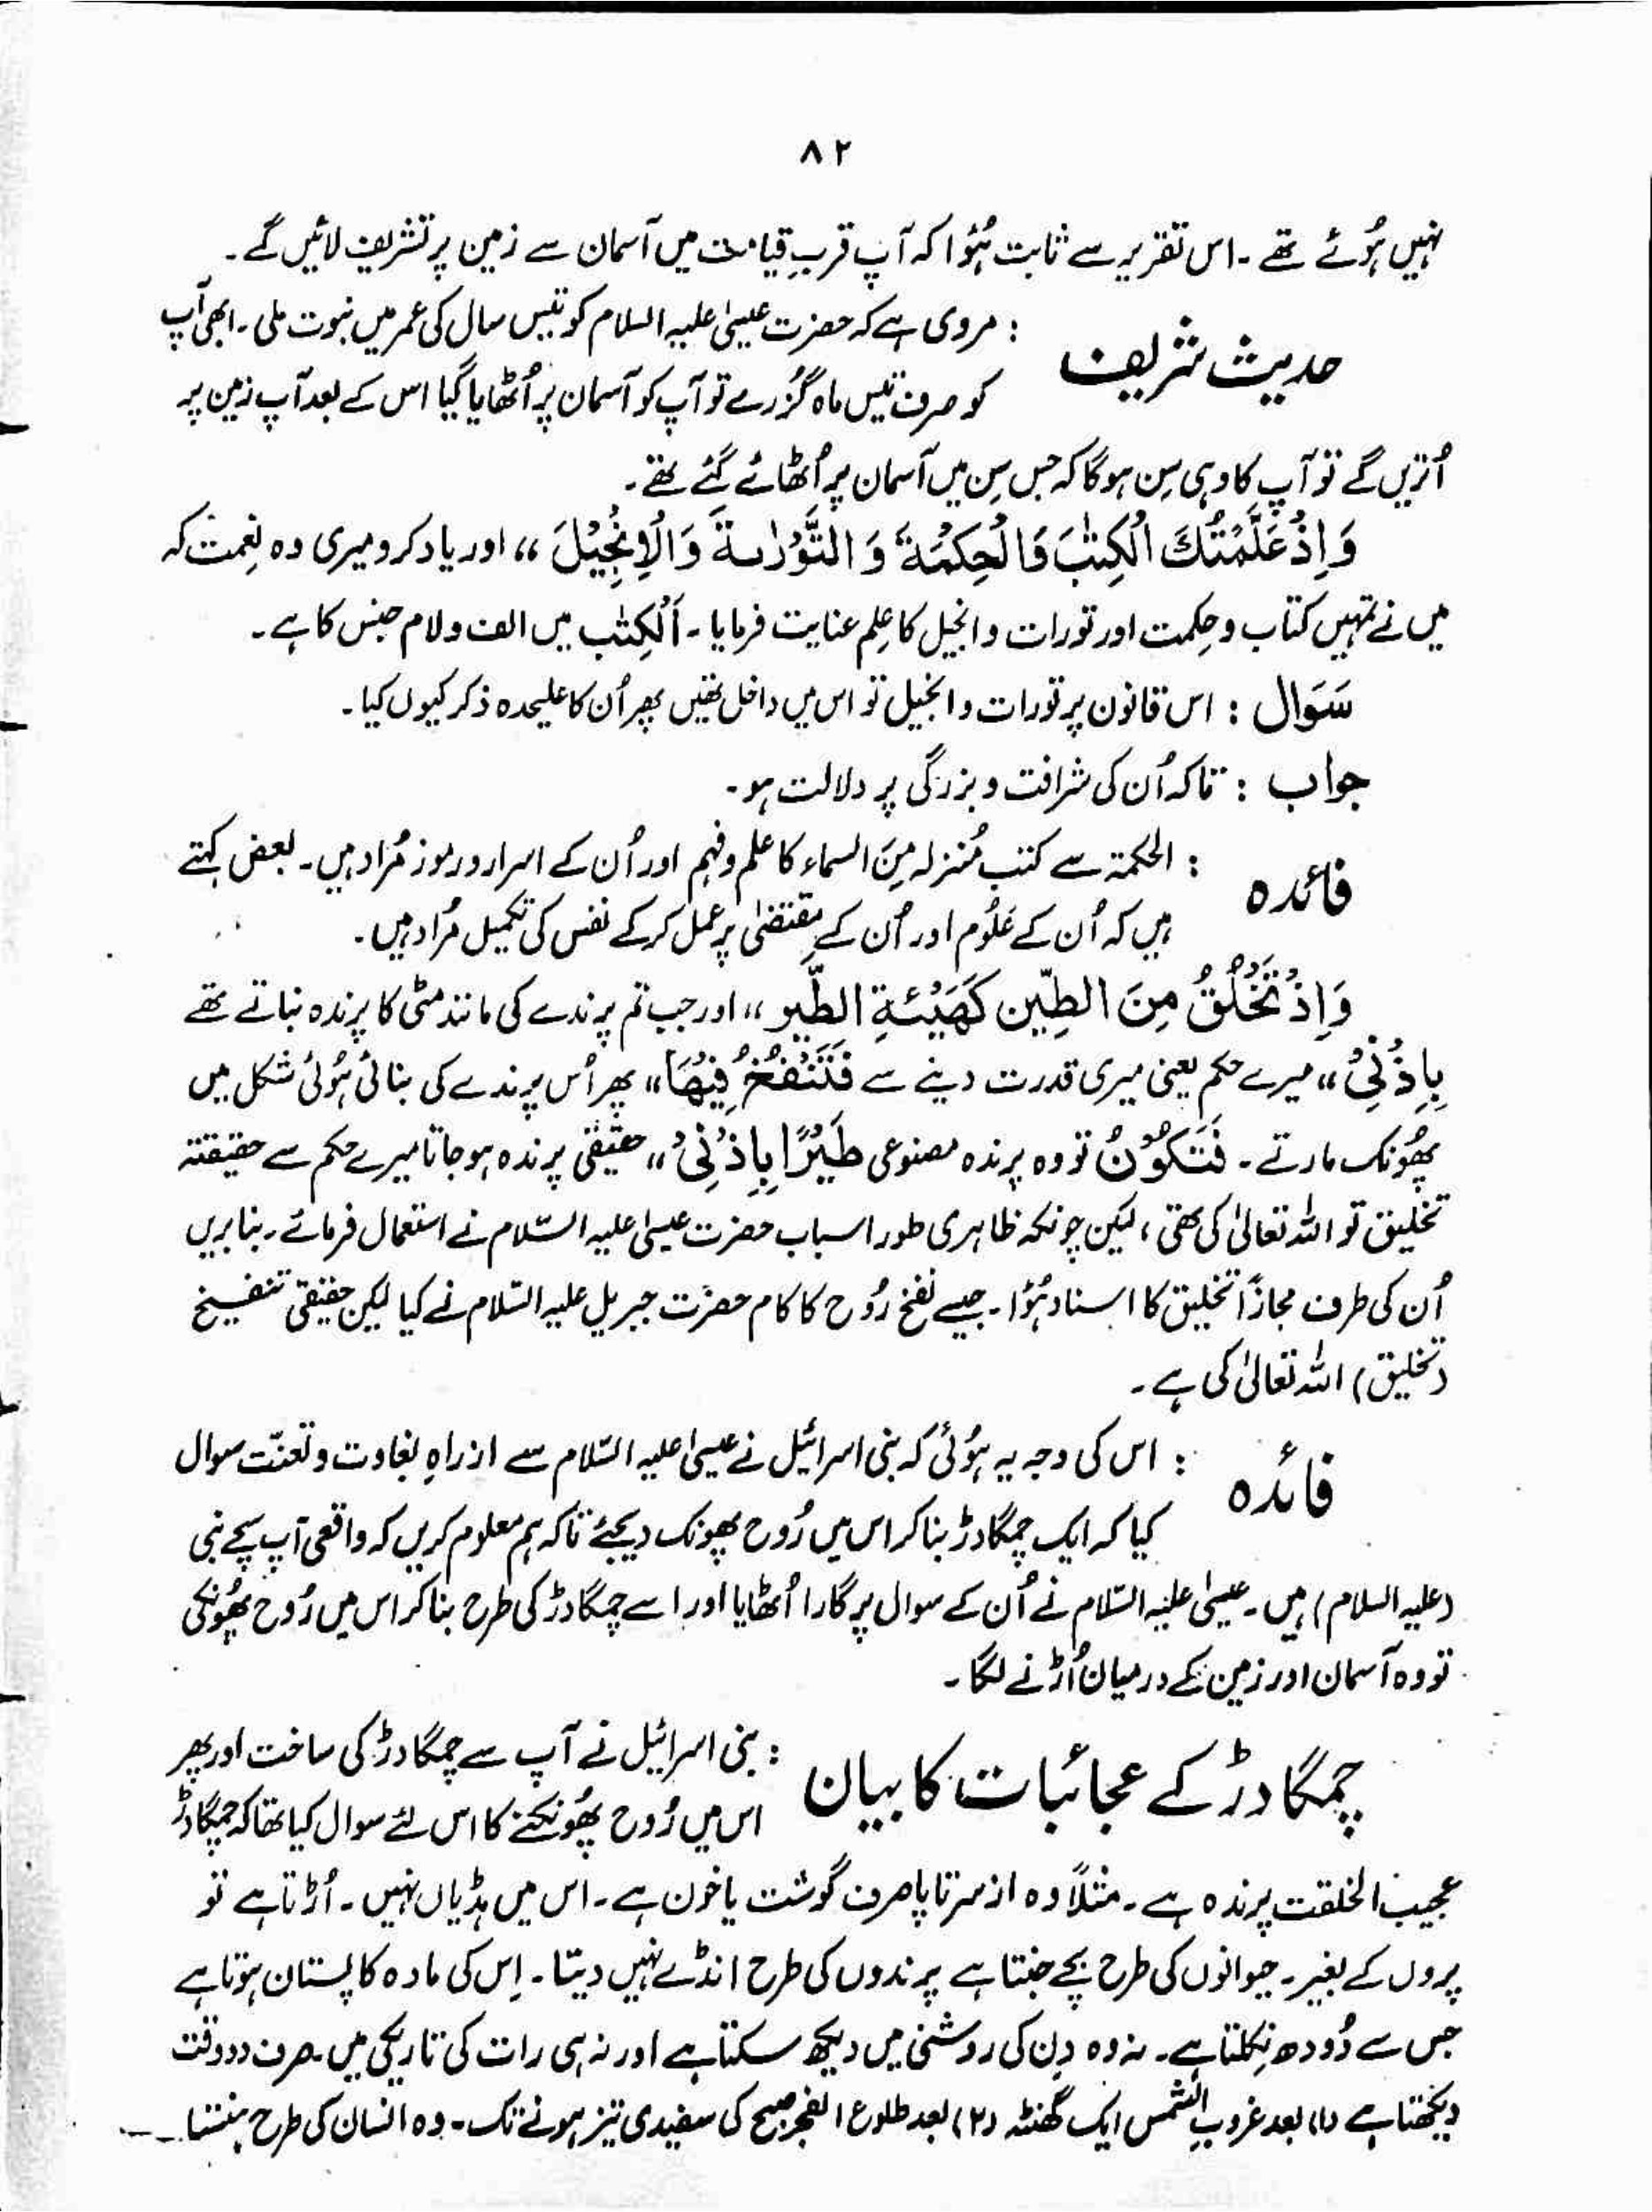 ۸۲
نہیں ہُوئے تھے ۔ اس تقریر سے ثابت ہُوا کہ آپ قربِ قیامت میں آسمان سے زمین پر تشریف لائیں گے ۔
حدیث شریف : مروی ہے کہ حضرت عیسیٰ علیہ السلام کو تیس سال کی عمر میں نبوت ملی ۔ ابھی آپ
کو صرف تیس ماہ گزرے تو آپ کو آسمان پر اُٹھایا گیا اس کے بعد آپ زمین پر
اُتریں گے تو آپ کا وہی سِن ہوگا کہ جس سِن میں آسمان پر اُٹھائے گئے تھے ۔
وَ اِذْ عَلَّمْتُكَ الْكِتٰبَ وَالْحِكْمَةَ وَ التَّوْرٰىةَ وَالْاِنْجِيْلَ ،، اور یاد کرو میری وہ نِعمت کہ
میں نے تمہیں کتاب و حِکمت اور تورات و انجیل کا عِلم عنایت فرمایا ۔ اَلْکِتٰب میں الف و لام جنس کا ہے ۔
سَوَال : اس قانون پر تورات و انجیل تو اس میں داخل تھیں پھر اُن کا علیحدہ ذکر کیوں کیا ۔
جواب : تاکہ اُن کی شرافت و بزرگی پر دلالت ہو ۔
فائدہ : الحکمۃ سے کتب مُنزلہ مِنَ السماء کا علم و فہم اور اُن کے اسرار و رموز مُراد ہیں ۔ بعض کہتے
ہیں کہ اُن کے عَلُوم اور اُن کے مقتضیٰ پر عمل کرکے نفس کی تکمیل مُراد ہیں ۔
وَاِذْ تَخْلُقُ مِنَ الطِّيْنِ كَهَيْئَةِ الطَّيْرِ ،، اور جب تم پرندے کی مانند مٹی کا پرندہ بناتے تھے
بِاِذْنِيْ ،، میرے حکم یعنی میری قدرت دینے سے فَتَنْفُخُ فِيْهَا ،، پھر اُس پرندے کی بنائی ہُوئی شکل میں
پھُونک مارتے ۔ فَتَكُوْنُ تو وہ پرندہ مصنوعی طَيْرًا بِاِذْنِيْ ،، حقیقی پرندہ ہو جاتا میرے حکم سے حقیقتہ
تخلیق تو اللہ تعالیٰ کی تھی ، لیکن چونکہ ظاہری طور اسباب حضرت عیسیٰ علیہ السّلام نے استعمال فرمائے ۔ بنا بریں
اُن کی طرف مجازًا تخلیق کا اسناد ہُوا ۔ جیسے نفخ رُوح کا کام حضرت جبریل علیہ السّلام نے کیا لیکن حقیقی تنفیخ
(تخلیق) اللہ تعالیٰ کی ہے ۔
فائدہ : اس کی وجہ یہ ہُوئی کہ بنی اسرائیل نے عیسیٰ علیہ السّلام سے ازراہِ بغاوت و تعنّت سوال
کیا کہ ایک چمگادڑ بنا کر اس میں رُوح پھونک دیجئے تاکہ ہم معلوم کریں کہ واقعی آپ سچے نبی
(علیہ السلام) ہیں ۔ عیسیٰ علیہ السّلام نے اُن کے سوال پر گارا اُٹھایا اور اسے چمگادڑ کی طرح بنا کر اس میں رُوح پھُونکی
تو وہ آسمان اور زمین کے درمیان اُڑنے لگا ۔
چمگادڑ کے عجائبات کا بیان : بنی اسرائیل نے آپ سے چمگادڑ کی ساخت اور پھر
اس میں رُوح پھُونکنے کا اس لئے سوال کیا تھا کہ چمگادڑ
عجیب الخلقت پرندہ ہے ۔ مثلاً وہ از سر تا پا صرف گوشت یا خون ہے ۔ اس میں ہڈیاں نہیں ۔ اُڑتا ہے تو
پروں کے بغیر ۔ حیوانوں کی طرح بچے جنتا ہے پرندوں کی طرح انڈے نہیں دیتا ۔ اِس کی مادہ کا پستان ہوتا ہے
جس سے دُودھ نِکلتا ہے ۔ نہ وہ دِن کی روشنی میں دیکھ سکتا ہے اور نہ ہی رات کی تاریکی میں ۔ صرف دو وقت
دیکھتا ہے (۱) بعد غروبِ الشمس ایک گھنٹہ (۲) بعد طلوع الفجر صبح کی سفیدی تیز ہونے تک ۔ وہ انسان کی طرح ہنستا